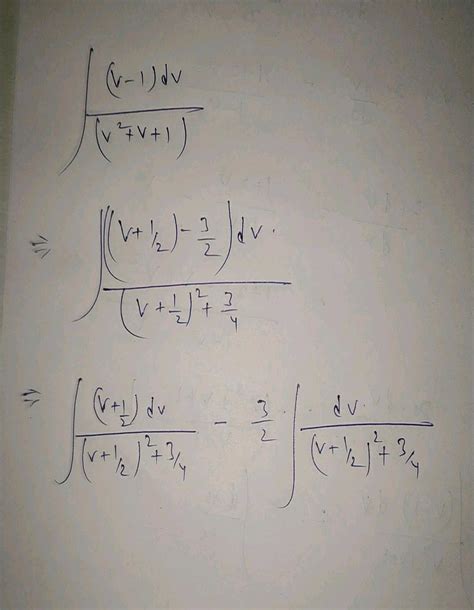 ∫ (v-1) dv / (v²+v+1)
⇒ ∫ ((v+1/2) - 3/2) dv. / (v+1/2)² + 3/4
⇒ ∫ (v+1/2) dv / (v+1/2)² + 3/4 - 3/2 ∫ dv. / (v+1/2)² + 3/4